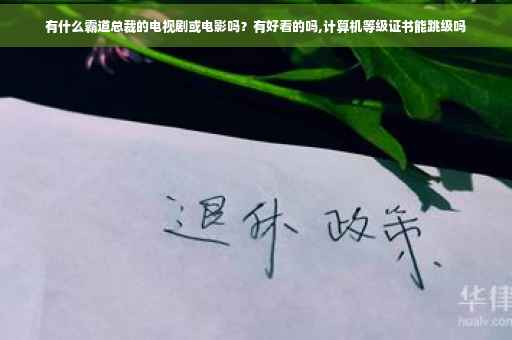 有什么霸道总裁的电视剧或电影吗？有好看的吗,计算机等级证书能跳级吗
退休 政策
华律
hualv.com